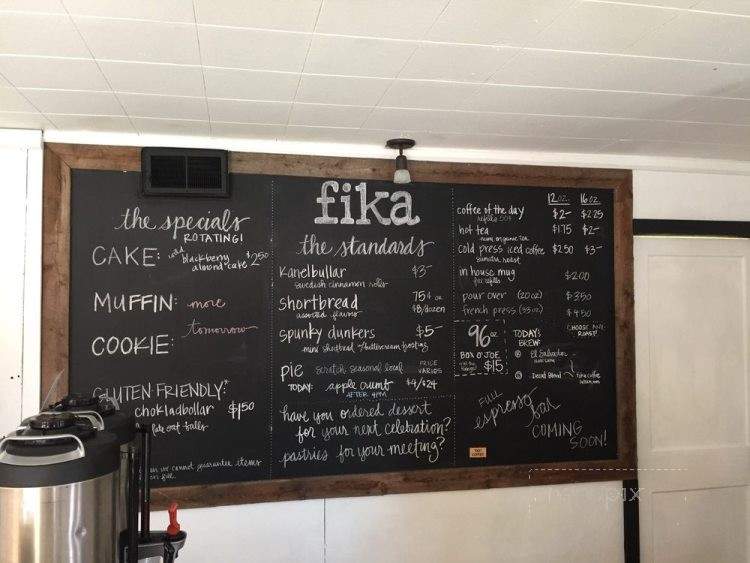 the specials
ROTATING!
CAKE: blackberry $2.50
almond cake
MUFFIN: more
tomorrow
COOKIE:
GLUTEN FRIENDLY:
chokladbollar $1.50
oat balls
we cannot guarantee items
fika
the standards
kanelbullar $3-
swedish cinnamon rolls
shortbread 75¢ or
assorted flavors $8/dozen
spunky dunkers $5-
mini shortbread + buttercream frosting
pie scratch seasonal local PRICE
VARIES
TODAY: apple crumb $4/$24
AFTER 4PM
have you ordered dessert
for your next celebration?
pastries for your meeting?
12 oz. 16 oz.
coffee of the day $2- $2.25
refills 50¢
hot tea $1.75 $2-
organic tea
cold press iced coffee $2.50 $3-
sumatra roast
in house mug $2.00
free refills
pour over (20oz) $3.50
french press (33oz) $4.50
CHOOSE ANY
ROAST!
96 oz
BOX O' JOE
$15
TODAY'S
BREW:
El Salvador
Decaf Blend
FULL
espresso bar
COMING
SOON!